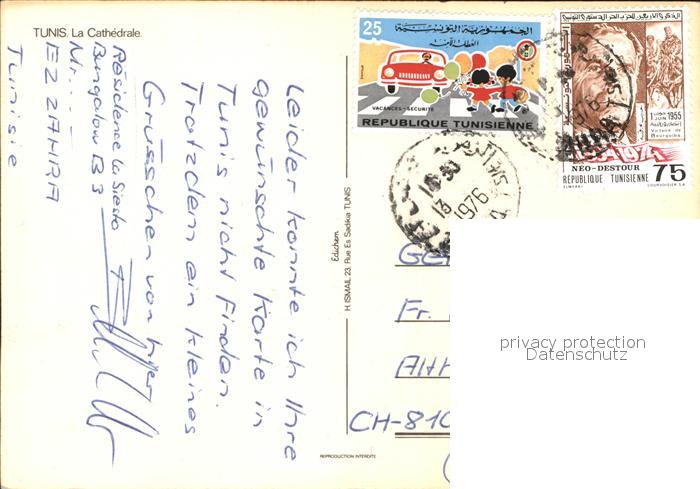 TUNIS. La Cathédrale.
Leider konnte ich Ihre
gewünschte Karte in
Tunis nicht finden.
Trotzdem ein kleines
Grüsschen von hier
Résidence la Siesta
Bungalow B3
Mr. ...
EZ ZAHRA
Tunisie
Edichem
H. ISMAIL 23, Rue Es Sadikia TUNIS
REPRODUCTION INTERDITE
25
الجمهورية التونسية
العطل الآمنة
VACANCES - SECURITE
REPUBLIQUE TUNISIENNE
1 JUIN 1955
Victoire de
Bourguiba
1974
NEO-DESTOUR
75
REPUBLIQUE TUNISIENNE
ELMEKKI
COURVOISIER S.A.
13
1976
1976
Fr.
CH-810
privacy protection
Datenschutz